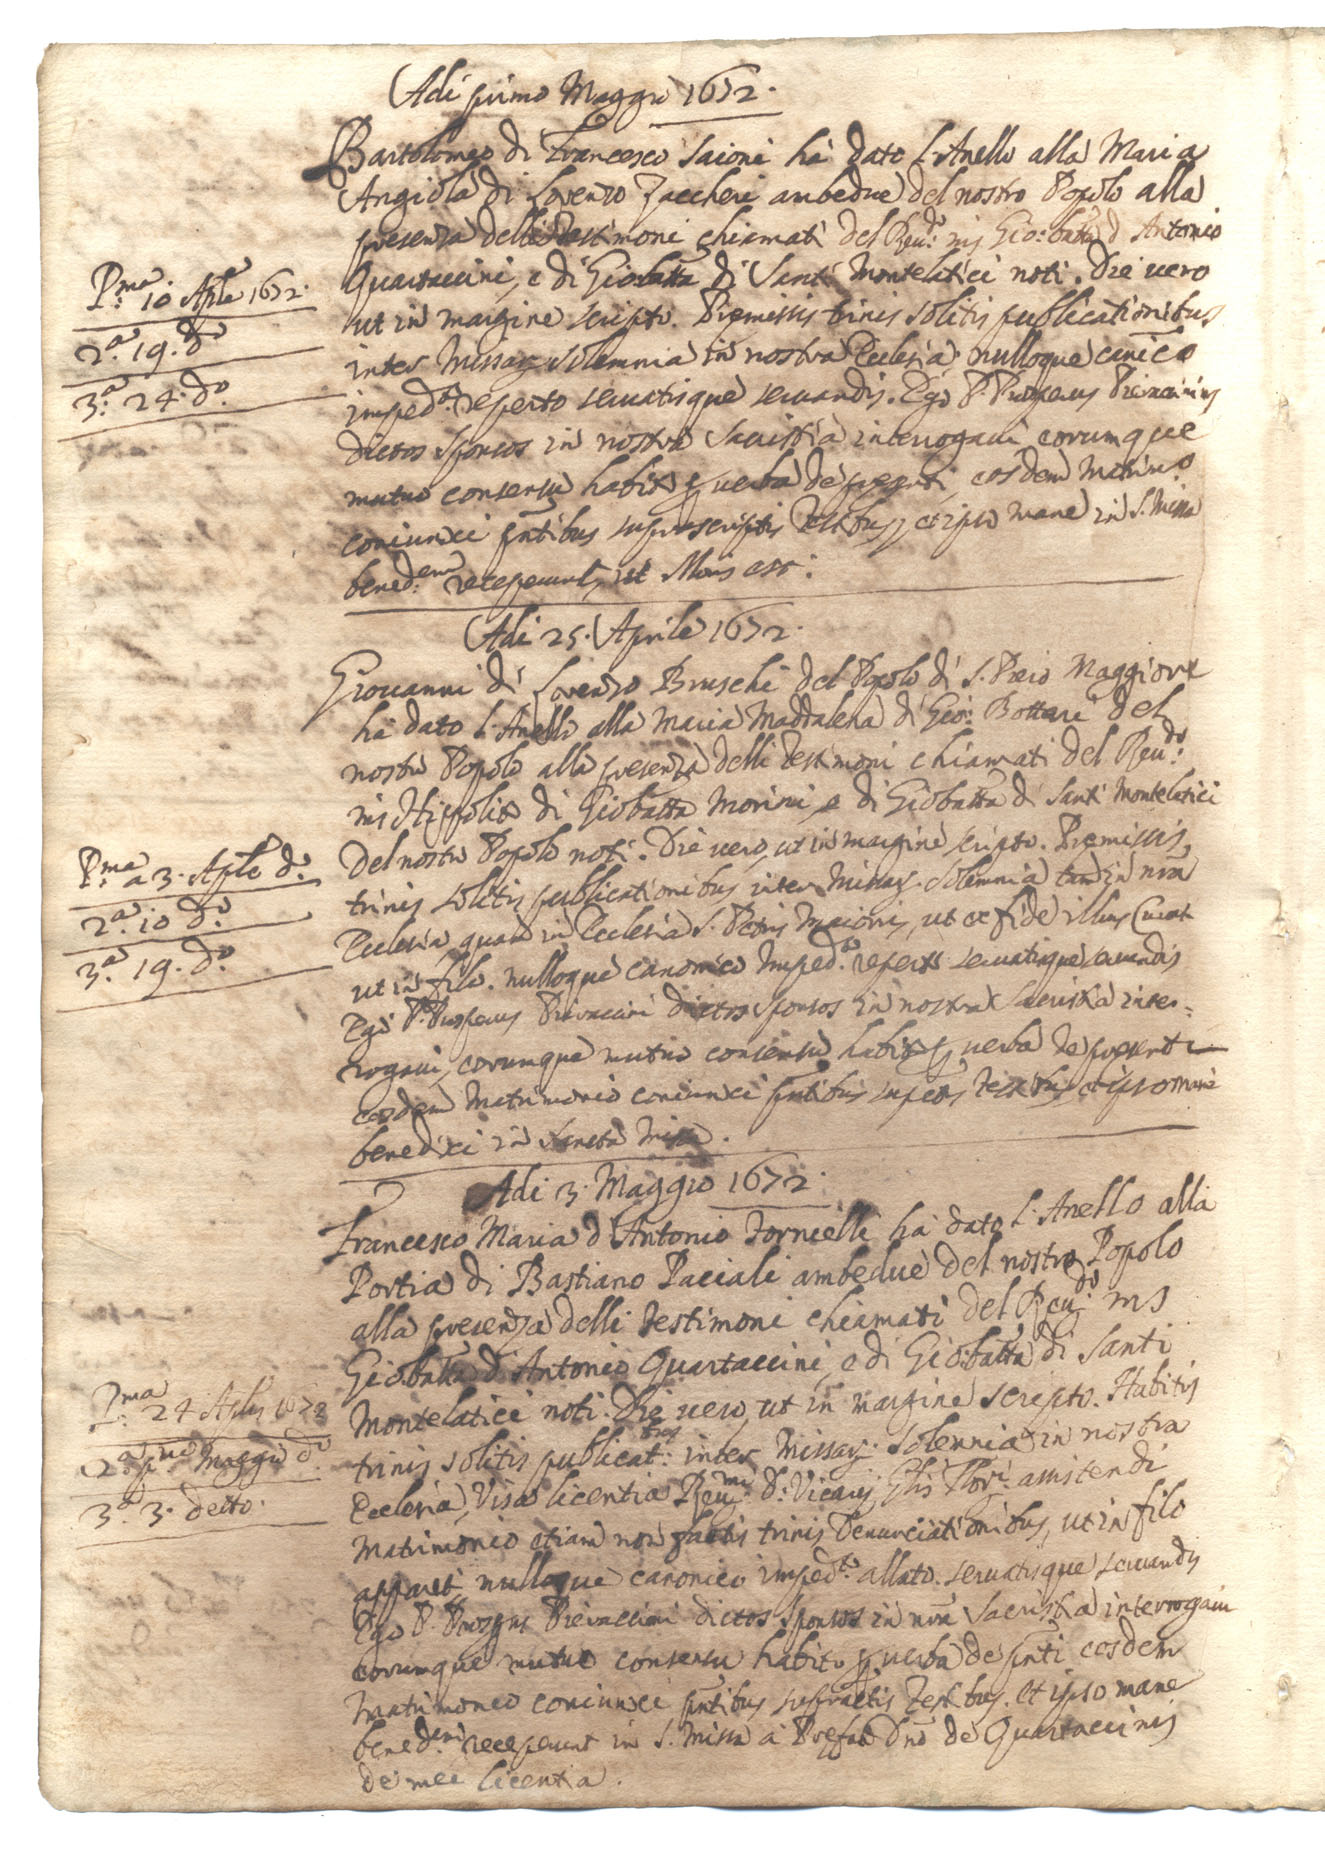 Adi primo Maggio 1672.
Bartolomeo di Francesco Saioni ha dato l'Anello alla Maria
Angiola di Lorenzo Zaccheri ambedue del nostro Popolo alla
presenza delli Testimoni chiamati del Reu:do ms Gio:batta d Antonio
Quartaccini, e di Giobatta di Santi Montelatici noti. Die uero
ut in margine scripto. Premissis trinis solitis publicationibus
inter Missar solemnia in nostra Ecclesia nulloque canico
imped:to reperto seruatisque seruandis. Ego P. Prosperus Pieuaccinius
dictos sponsos in nostra sacristia interrogaui eorumque
mutuo consensu habito p uerba de presenti, eosdem Matrim:o
coniunxi pntibus suprascriptis Testibus, et ipso mane in S. Missa
bened:em receperunt, ut Moris est.
Pma 10 Aple 1672.
2a 19. do
3a 24. do
Adi 25. Aprile 1672.
Giouanni di Lorenzo Bruschi del Popolo di S. Piero Maggiore
ha dato l'Anello alla Maria Maddalena di Gio: Bottari del
nostro Popolo alla presenza delli Testimoni chiamati del Reu:do
ms Hippolito di Giobatta Morini, e di Giobatta di Santi Montelatici
del nostro Popolo noti. Die uero, ut in margine scripto. Premissis
trinis solitis publicationibus inter Missar. solemnia tam in nra
Ecclesia, quam in Ecclesia S. Petri Maioris, ut ex fide illius Curat
ut in filo. nulloque canonico imped:to reperto seruatisque seruandis
Ego P. Prosperus Pieuaccini dictos sponsos in nostra sacristia inter=
rogaui, eorumque mutuo consensu habito p uerba de presenti
eosdem Matrimonio coniunxi pntibus Testibus et ipso mane
benedixi in Sancta Missa.
Pma a 3. Aple do
2a 10 do
3a 19. do
Adi 3. Maggio 1672.
Francesco Maria d'Antonio Fornielli ha dato l'Anello alla
Portia di Bastiano Paciali ambedue del nostro Popolo
alla presenza delli Testimoni chiamati del Reu:do ms
Giobatta d'Antonio Quartaccini, e di Gio:batta di Santi
Montelatici noti. Die uero, ut in margine scripto. Habitis
trinis solitis publicat:bus inter Missar. Solennia in nostra
Ecclesia, Visa licentia Reu:mi D: Vicarij Glis Flor: assistendi
Matrimonio etiam non factis trinis Denunciationibus, ut in filo
apparet, nulloque canonico imped:to allato. seruatisque seruandis
Ego P. Prosperus Pieuaccini dictos sponsos in nra Sacristia interrogaui
eorumque mutuo consensu habito p uerba de pnti eosdem
Matrimonio coniunxi pntibus supractis Testibus. et ipso mane
bened:em receperunt in S. Missa a Prefato Dno de Quartaccinis
de mei licentia.
Pma 24 Aplis 1672
2a pmo Maggio do
3a 3. detto.